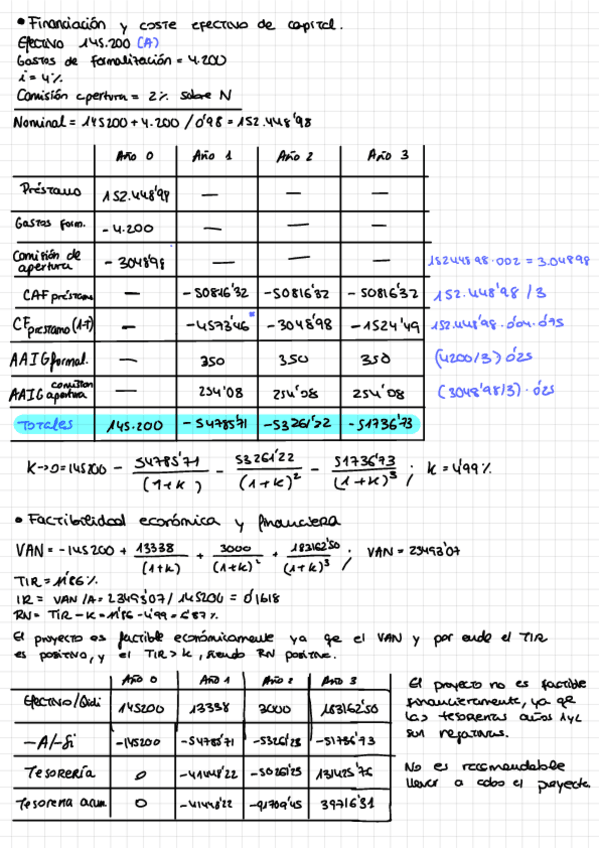 • Financiación y coste efectivo de capital.
Efectivo 145.200 (A)
Gastos de formalización = 4.200
i = 4%
Comisión apertura = 2% sobre N
Nominal = 145200 + 4.200 / 0'98 = 152.448'98
Año 0 Año 1 Año 2 Año 3
Préstamo 152.448'98 — — —
Gastos form. - 4.200 — — —
Comisión de apertura - 3048'98 — — — 152448 98 · 002 = 3.04898
CAF préstamo — -50816'32 -50816'32 -50816'32 152.448'98 / 3
CF préstamo (1-t) — -4573'46 * -3048'98 -1524'49 152.448'98 · 0'04 · 0'75
AAIG formal. — 350 350 350 (4200/3) 0'25
AAIG comision apertura — 254'08 254'08 254'08 (3048'98/3) · 0'25
Totales 145.200 -54785'71 -53261'22 -51736'73
K → 0 = 145200 - 54785'71 / (1+K) - 53261'22 / (1+K)² - 51736'73 / (1+K)³ ; K = 4'99%
• Factibilidad económica y financiera
VAN = -145200 + 13338 / (1+K) + 3000 / (1+K)² + 183162'50 / (1+K)³ ; VAN = 23493'07
TIR = 11'86%
IR = VAN/A = 23493'07 / 145200 = 0'1618
RN = TIR - K = 11'86 - 4'99 = 6'87%
El proyecto es factible económicamente ya qe el VAN y por ende el TIR
es positivo, y el TIR > K, siendo RN positive.
Año 0 Año 1 Año 2 Año 3
Efectivo/Qidi 145200 13338 3000 183162'50
-A/-Si -145200 -54785'71 -53261'23 -51736'73
Tesorería 0 -41448'22 -50261'23 131425'76
Tesorería acum. 0 -41448'22 -91709'45 39716'31
El proyecto no es factible
financieramente, ya qe
las tesorerías años 1 y 2
son negativas.
No es recomendable
llevar a cabo el proyecto.